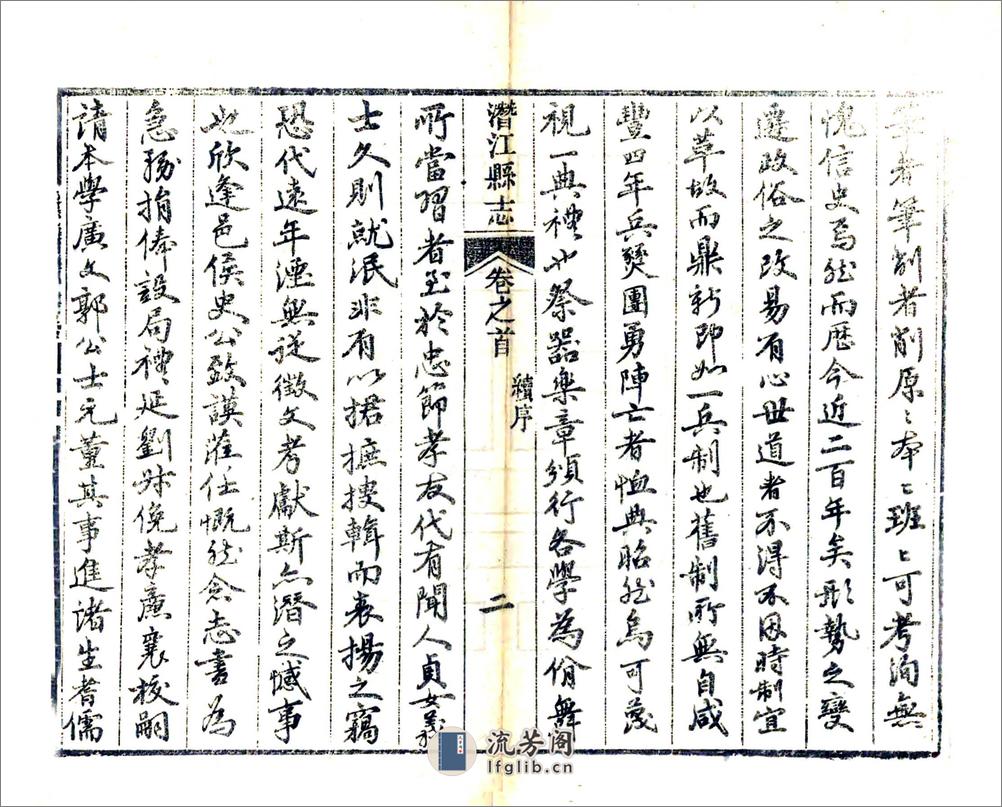 筆者筆削者削原〻本〻班〻可考洵無
愧信史焉然而歷今近二百年矣形勢之變
遷政俗之改易有心世道者不得不因時制宜
以革故而鼎新即如一兵制也舊制所無自咸
豐四年兵燹團勇陣亡者恤典昭然烏可蔑
視一典禮也祭器樂章頒行各學為佾舞
潛江縣志 卷之首 續序 二
所當習者至於忠節孝友代有聞人貞女義
士久則就泯非有以捃摭搜輯而表揚之竊
恐代遠年湮無從徵文考獻斯亦潛之憾事
也欣逢邑侯史公致謨蒞任慨然念志書為
急務捐俸設局禮延劉恱俛孝廉襄校嗣
請本學廣文郭公士元董其事進諸生耆儒
流芳阁
lfglib.cn